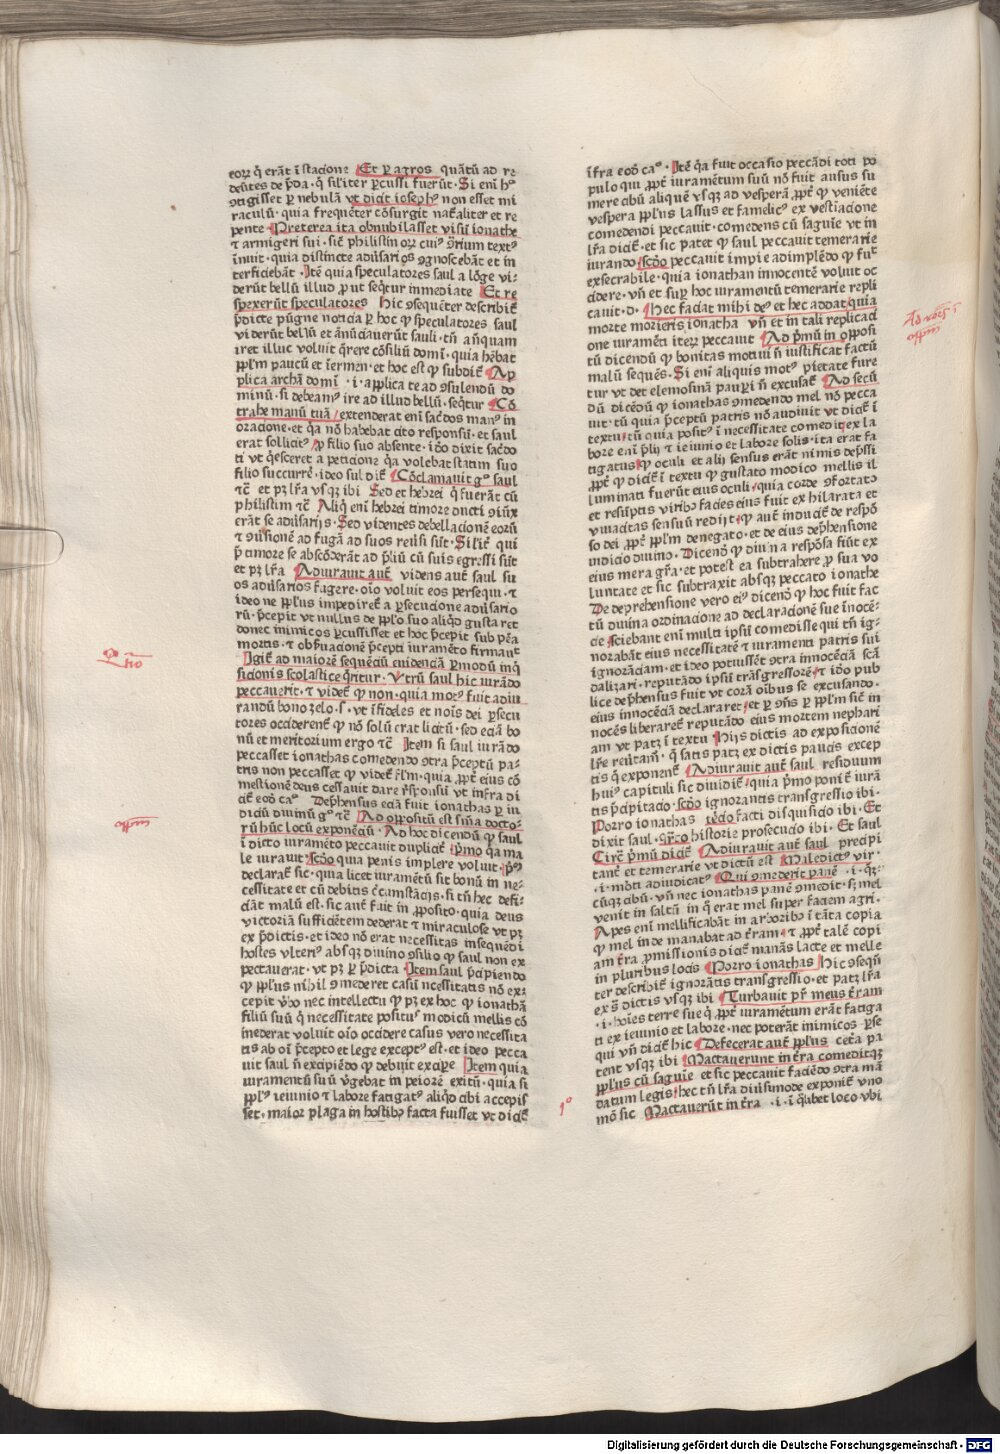 eorꝝ q̄ erāt ī stacione Et per agros quātū ad re
deūtes de p̄da · q̄ siliter ꝑcussi fuerūt · Si enī hꝰ
ꝯtigisset ꝑ nebulā vt dicit iosephꝰ non esset mi
raculū · quia frequēter cōsurgit nat̄aliter et re
pente · Preterea ita obnubilasset visū ionathe
⁊ armigeri sui · sic̄ philistinorꝝ cuiꝰ ꝯriū textꝰ
īnuit · quia distincte adūsarios ꝯgnoscebāt et in
terficiebāt · Itē quia speculatores saul a lōge vi
derūt bellū illud ꝓut seq̄tur inmediate Et re
spexerūt speculatores Hic ꝯsequēter describit̄
p̄dicte pugne noticia per hoc ꝙ speculatores saul
viderūt bellū et ānūciaverūt sauli · tn̄ anq̄uam
iret illuc voluit q̄rere cōsiliū domī · quia hēbat
ppl̄m paucū et īermen · et hoc est ꝙ subdit̄ Ap
plica archā domī · i · applica te ad ꝯsulendū do
minū · si debeamꝰ ire ad illud bellū · seq̄tur Cō
trahe manū tuā / extenderat enī sac̄dos manꝰ in
oracione · et q̄a nō habebat cito responsū · et saul
erat sollicitꝰ ꝓ filio suo absente · ido dixit sac̄do
ti vt q̄esceret a peticione q̄a volebat statim suo
filio succurrē · ideo sul dit̄ Cōclamavit gͦ saul
⁊c̄ et pꝫ lr̄a vsqꝫ ibi Sed et hebrei q̄ fuerāt cū
philistim ⁊c̄ Aliq̄ enī hebrei timore ducti ꝯiūx
erāt se adūsarijs · Sed videntes debellacionē eorū
⁊ ꝯūsionē ad fugā ad suos reūsi sūt · Silit̄ qui
p̄ timore se absc̄oderāt ad p̄liū cū suis egressi sūt
et pꝫ lr̄a Adiuravit aut̄ videns aut̄ saul su
os adūsarios fugere · oīo voluit eos persequi · ⁊
ideo ne ppl̄us impediret̄ a ꝑsecucione adūsario
rū · p̄cepit vt nullus de ppl̄o suo aliq̄d gustaret
donec inimicos ꝑcussisset et hoc p̄cepit sub pēa
mortis · ⁊ obẜuacionē p̄cepti iuramēto firmavit
Igit̄ ad maiorē sequēciū evidenciā ꝑ modū inq̄
sicionis scolastice q̄ritur · Vtrū saul hic iurādo
peccaverit · ⁊ videt̄ ꝙ non · quia motꝰ fuit ad iu
randū bono zelo · s · vt īfideles et nois dei ꝑsecu
tores occiderent̄ ꝙ nō solū erat licitū · sed eciā bo
nū et meritorium ergo ⁊c̄ Item si saul iurādo
peccasset ionathas comedendo ꝯtra p̄ceptū pa⸗
tris non peccasset ꝙ videt̄ fl̄m · quia ꝓpt̄ eius cō
mestionē deus cessavit dare rn̄sponsū vt infra di
cit̄ eod̄ caͦ Dep̄hensus eciā fuit ionathas ꝑ iu
diciū divinū gͦ ⁊c̄ Ad oppositū est sn̄ia docto⸗
rū hūc locū exponēciū · Ad hoc dicendū ꝙ saul
ī dicto iuramēto peccavit duplicit̄ p̄mo q̄a ma
le iuravit scd̄o quia penis implere voluit · p̄mͦ
declarat̄ sic · quia licet iuramētū sit bonū in ne⸗
cessitate et cū debitis c̄cumstācijs · si tn̄ hec defi⸗
ciāt malū est · sic aut̄ fuit in ꝓposito · quia deus
victoriā sufficiētem dederat ⁊ miraculose vt pꝫ
ex p̄dictis · et ideo nō erat necessitas insequēdi
hostes vlteriꝰ absqꝫ divino ꝯsilio ꝙ saul non ex
pectaverat · vt pꝫ ꝑ p̄dicta Item saul p̄cipiendo
ꝙ ppl̄us nihil ꝯmederet casū necessitatis nō ex⸗
cepit v̄bo nec intellectu ꝙ pꝫ ex hoc ꝙ ionathā
filiū suū q̄ necessitate positus modicū mellis cō
mederat voluit oīo occidere casus vero necessita
tis ab oī p̄cepto et lege exceptꝰ est · et ideo pecca
vit saul n̄ excipiēdo ꝙ debuit excipe Item quia
iuramentū suū v̄gebat in peiorē exitū · quia si
ppl̄s ieiunio ⁊ labore fatigatꝰ aliq̄d cibi accepis
set · maior plaga in hostibꝰ facta fuisset vt dicit̄
īfra eod̄ caͦ · Itē q̄a fuit occasio peccādi toti po
pulo qui ꝓpt̄ iuramētum suū nō fuit ausus su
mere cibū aliquē vsqꝫ ad vesperā ꝓpt̄ ꝙ veniēte
vespera ppl̄us lassus et famelicꝰ ex vestiacione
comedendi peccavit · comedens cū saguīe vt in
lr̄a dicit̄ · et sic patet ꝙ saul peccavit temerarie
iurando scd̄o peccavit impie adimplēdo ꝙ fuͭ
exsecrabile · quia ionathan innocentē voluit oc
cidere · vn̄ et suꝑ hoc iuramētū temerarie repli
cavit · d · Hec faciat mihi deꝰ et hec addat quia
morte morieris ionatha vn̄ et in tali replicaci
one iuramēti iteꝝ peccavit Ad p̄mū in opposi
tū dicendū ꝙ bonitas motivi n̄ iustificat factū
malū sequēs · Si enī aliquis motꝰ pietate fure
tur vt det elemosinā pauꝑi n̄ excusat̄ Ad secū
dū dicēdū ꝙ ionathas ꝯmedendo mel nō pecca
vit · tū quia p̄ceptū patris nō audivit vt dicit̄ ī
textu · tū quia positꝰ ī necessitate comedit ex la
bore enī p̄lij ⁊ ieiunio et labore solis · ita erat fa
tigatus ꝙ oculi et alij sensus erāt nimis dep̄ssi
ꝓpt̄ ꝙ dicit̄ ī textu ꝙ gustato modico mellis il
luminati fuerūt eius oculi · quia corde ꝯfortato
et resūptis viribꝰ facies eius fuit exhilarata et
vivacitas sensuū redijt · ꝙ aut̄ inducit̄ de respō
so dei ꝓpt̄ ppl̄m denegato · et de eius dep̄hensione
iudicio divino · Dicendū ꝙ divina respōsa fiūt ex
eius mera gr̄a · et potest ea subtrahere ꝓ sua vo
luntate et sic subtraxit absqꝫ peccato ionathe
De deprehensione vero eiꝰ dicendū ꝙ hoc fuit fac
tū divina ordinacione ad declaracionē sue īnocē⸗
cie · sciebant enī multi ipsū comedisse qui tn̄ ig⸗
norabāt eius necessitatē ⁊ iuramenti patris sui
ignorāciam · et ideo potuissēt ꝯtra innocēciā scā
dalizari · reputādo ipsū trāsgressorē · ⁊ ido pub
lice dep̄hensus fuit vt corā oībus se excusando ·
eius innocēciā declararet et ꝑ ꝯn̄s ꝑ ppl̄m sic̄ in
nocēs liberaret̄ reputādo eius mortem nephari
am vt patꝫ ī textu Hijs dictis ad exposicionē
lr̄e reūtam̄ · q̄ satis patꝫ ex dictis paucis excep
tis q̄ exponent̄ Adiuravit aut̄ saul residuum
huiꝰ capituli sic dividit̄ quia p̄mo ponit̄ iurā
tis p̄cipitacio · scd̄o ignorantis transgressio ibi ·
Porro ionathas tercio facti disquisicio ibi · Et
dixit saul · q̄rto historie prosecucio ibi · Et saul
Circ̄ p̄mū dicit̄ Adiuravit aut̄ saul precipi
tanē et temerarie vt dictū est Maledictꝰ vir ·
· i · mōti adiudicatꝰ Qui ꝯmederit panē · i · q̄ꝫ⸗
cūqꝫ cibū · vn̄ nec ionathas panē ꝯmedit · sꝫ mel
venit in saltū in q̄ erat mel super faciem agri ·
Apes enī mellificabāt in arboribꝰ ī tāta copia
ꝙ mel inde manabat ad t̄ram · ⁊ ꝓpt̄ talē copi
am t̄ra ꝓmissionis dicit̄ manās lacte et melle
in pluribus locis Porro ionathas Hic ꝯseq̄n
ter describit̄ ignorātis transgressio · et patꝫ lr̄a
ex s̄ dictis vsqꝫ ibi Turbavit pr̄ meus t̄ram
· i · hoīes terre sue q̄ ꝓpt̄ iuramētum erāt fatiga
ti ex ieiunio et labore · nec poterāt inimicos ꝑse
qui vn̄ dicit̄ hic Defecerat aut̄ ppl̄us cet̄a pa
tent vsqꝫ ibi Mactaverunt in t̄ra comeditqꝫ
ppl̄us cū saguīe et sic peccavit faciēdo ꝯtra mā
datum legis hec tn̄ lr̄a diūsimode exponit̄ vno
mō sic Mactaverūt in t̄ra · i · ī q̄libet loco vbi
Digitalisierung gefördert durch die Deutsche Forschungsgemeinschaft - DFG